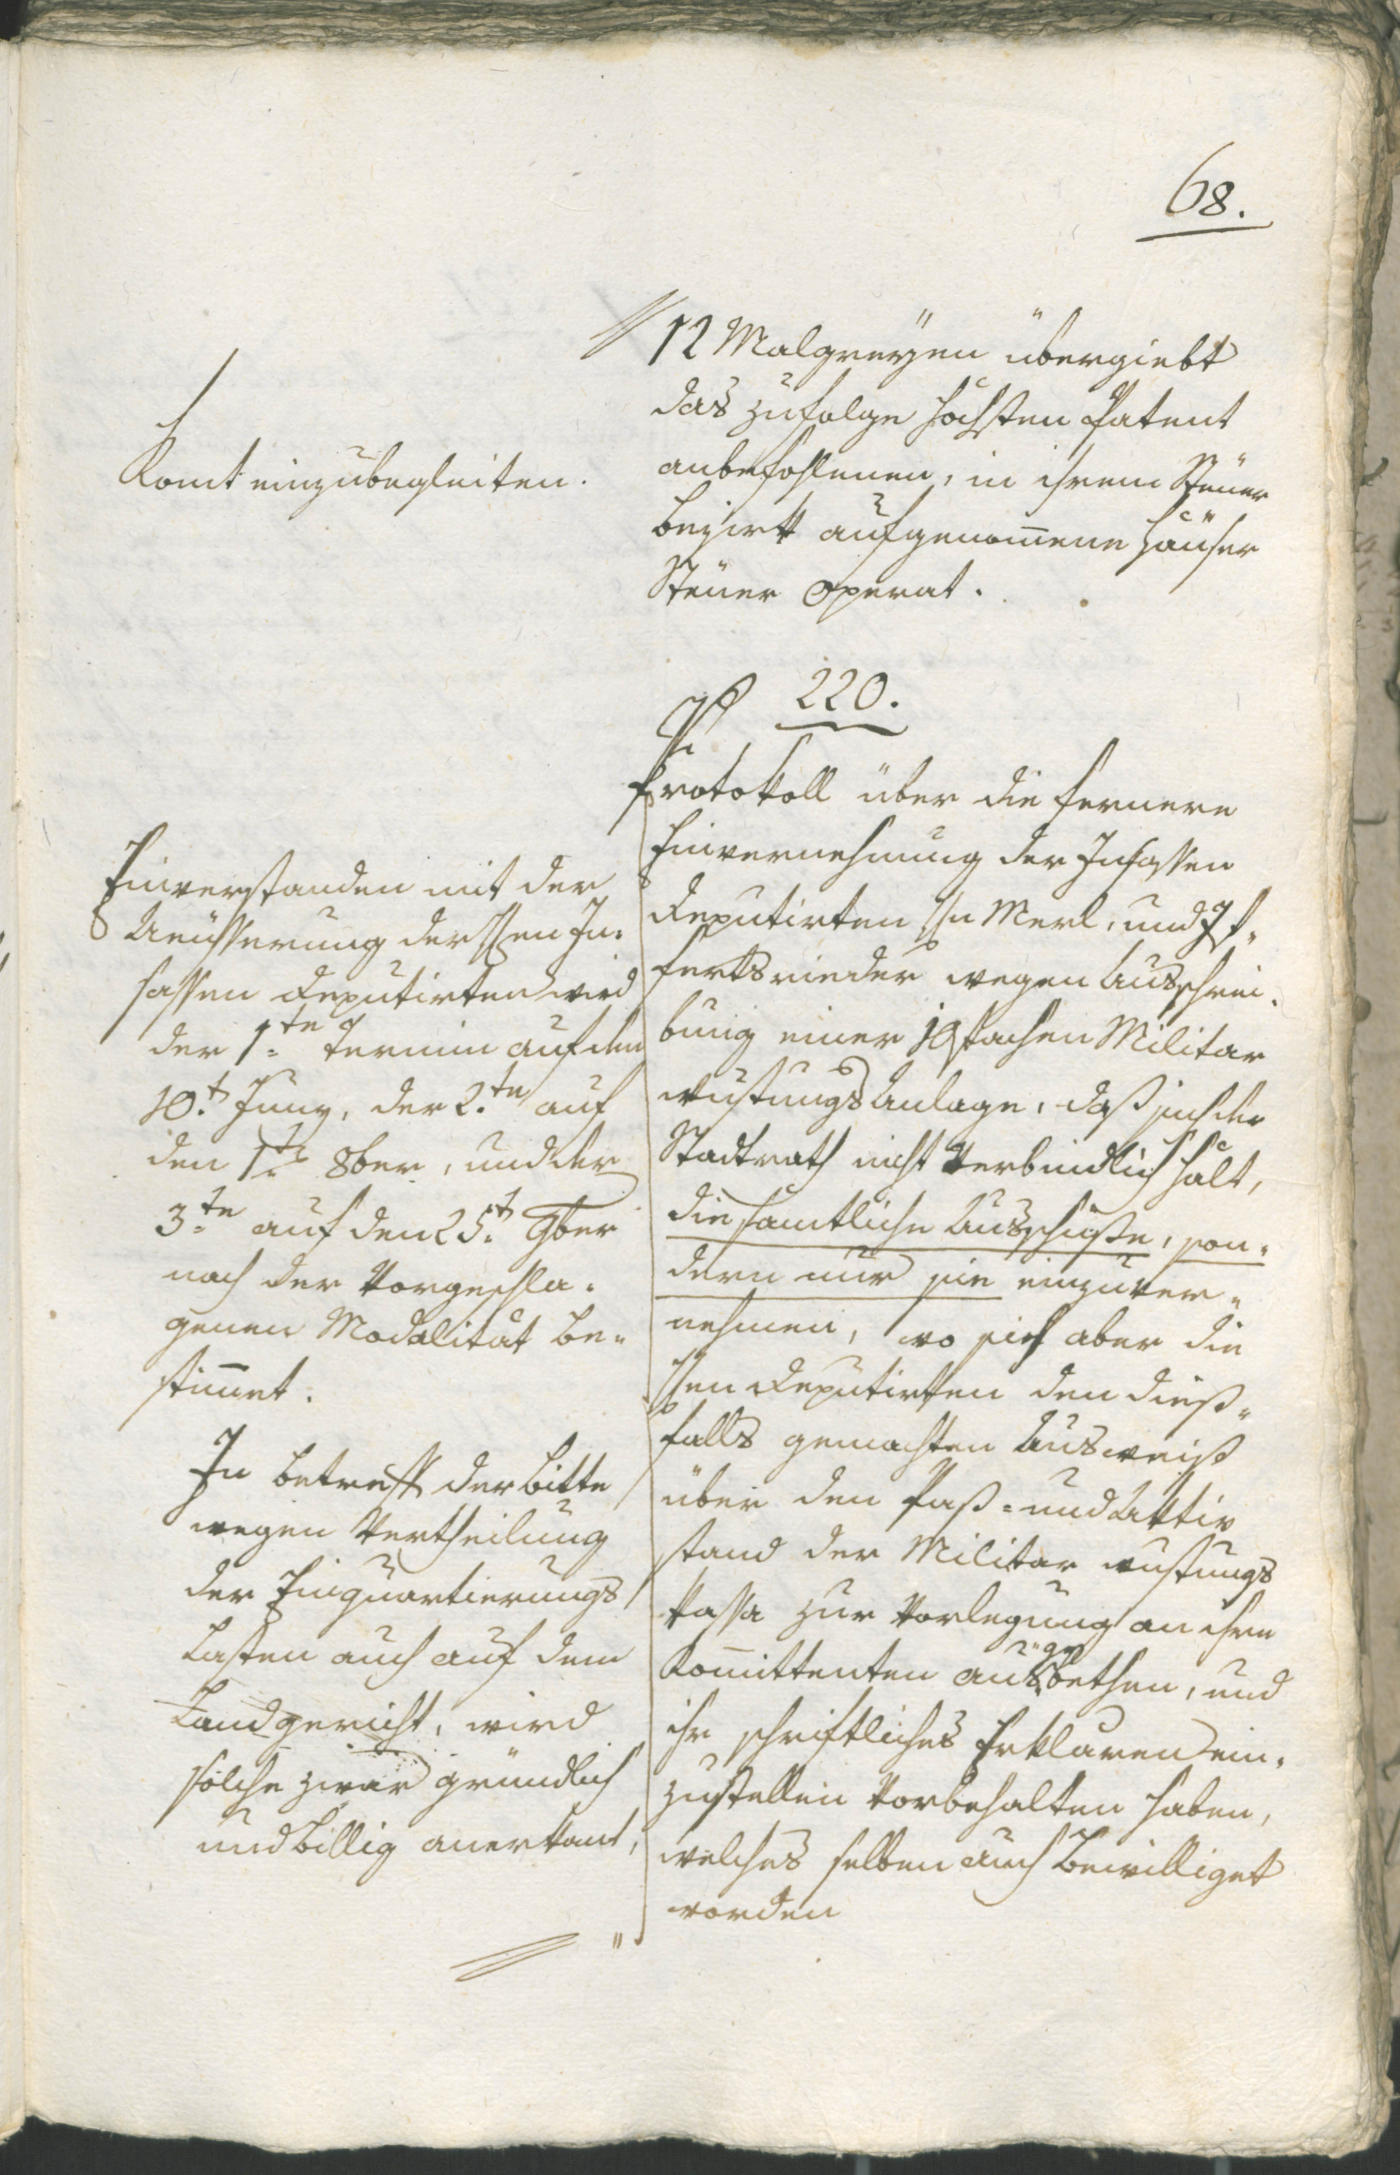 68.
12 Malgreyen übergiebt
das zufolge höchsten Patent
anbefohlenen, in ihrem Steuer
bezirk aufgenom̄ene Häuser
Steuer Operat.
Komt einzubegleiten.
220.
Protokoll über die fernere
Einvernehmung der Insassen
Deputirten Hn Merl, und
wegen Ausschrei-
bung einer 10fachen Militar
Anlage, daß sich der
Stadtrath nicht verbindlich halt,
die samtliche Ausschüße, son-
dern nur sie einzuver-
nehmen, wo sich aber die
Hen Deputirten den dieß-
falls gemachten Ausweiß
über den Paß- und Aktiv
stand der Militar rustungs
kassa zur Vorlegung an ihre
Kom̄ittenten ausgebethen, und
ihr schriftliches Erklaren ein-
zustellen vorbehalten haben,
welches selben auch bewilliget
worden
Einverstanden mit der
Aeüsserung der Hen In-
sassen Deputirten wird
der 1te Termin auf den
10t. Juny, der 2.te auf
den 1ts 8ber, und der
3te auf den 25t. 9ber
nach der Vorgeschla-
genen Modalität be-
stim̄et.
In betreff der bitte
wegen Vertheilung
der Einquartierungs
Lasten auch auf dem
Landgericht, wird
solche zwar gründlich
und billig anerkant,